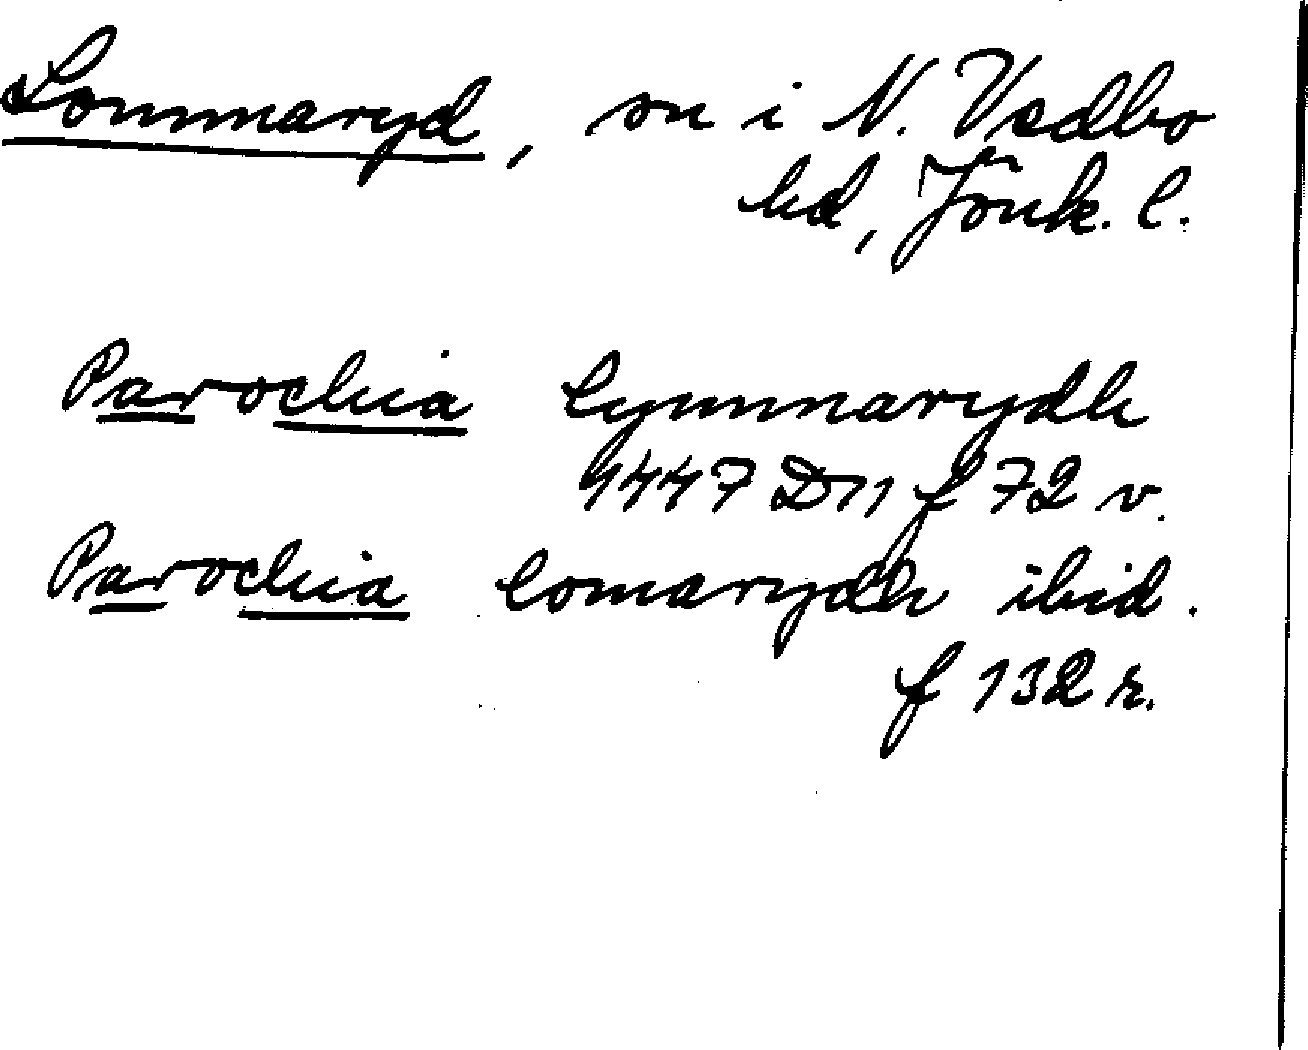 Lommaryd, sn i N. Vedbo
hd, Jönk. l.
Parochia lymmarydh
1447 D11 f 72 v.
Parochia lomarydh ibid.
f 132 r.